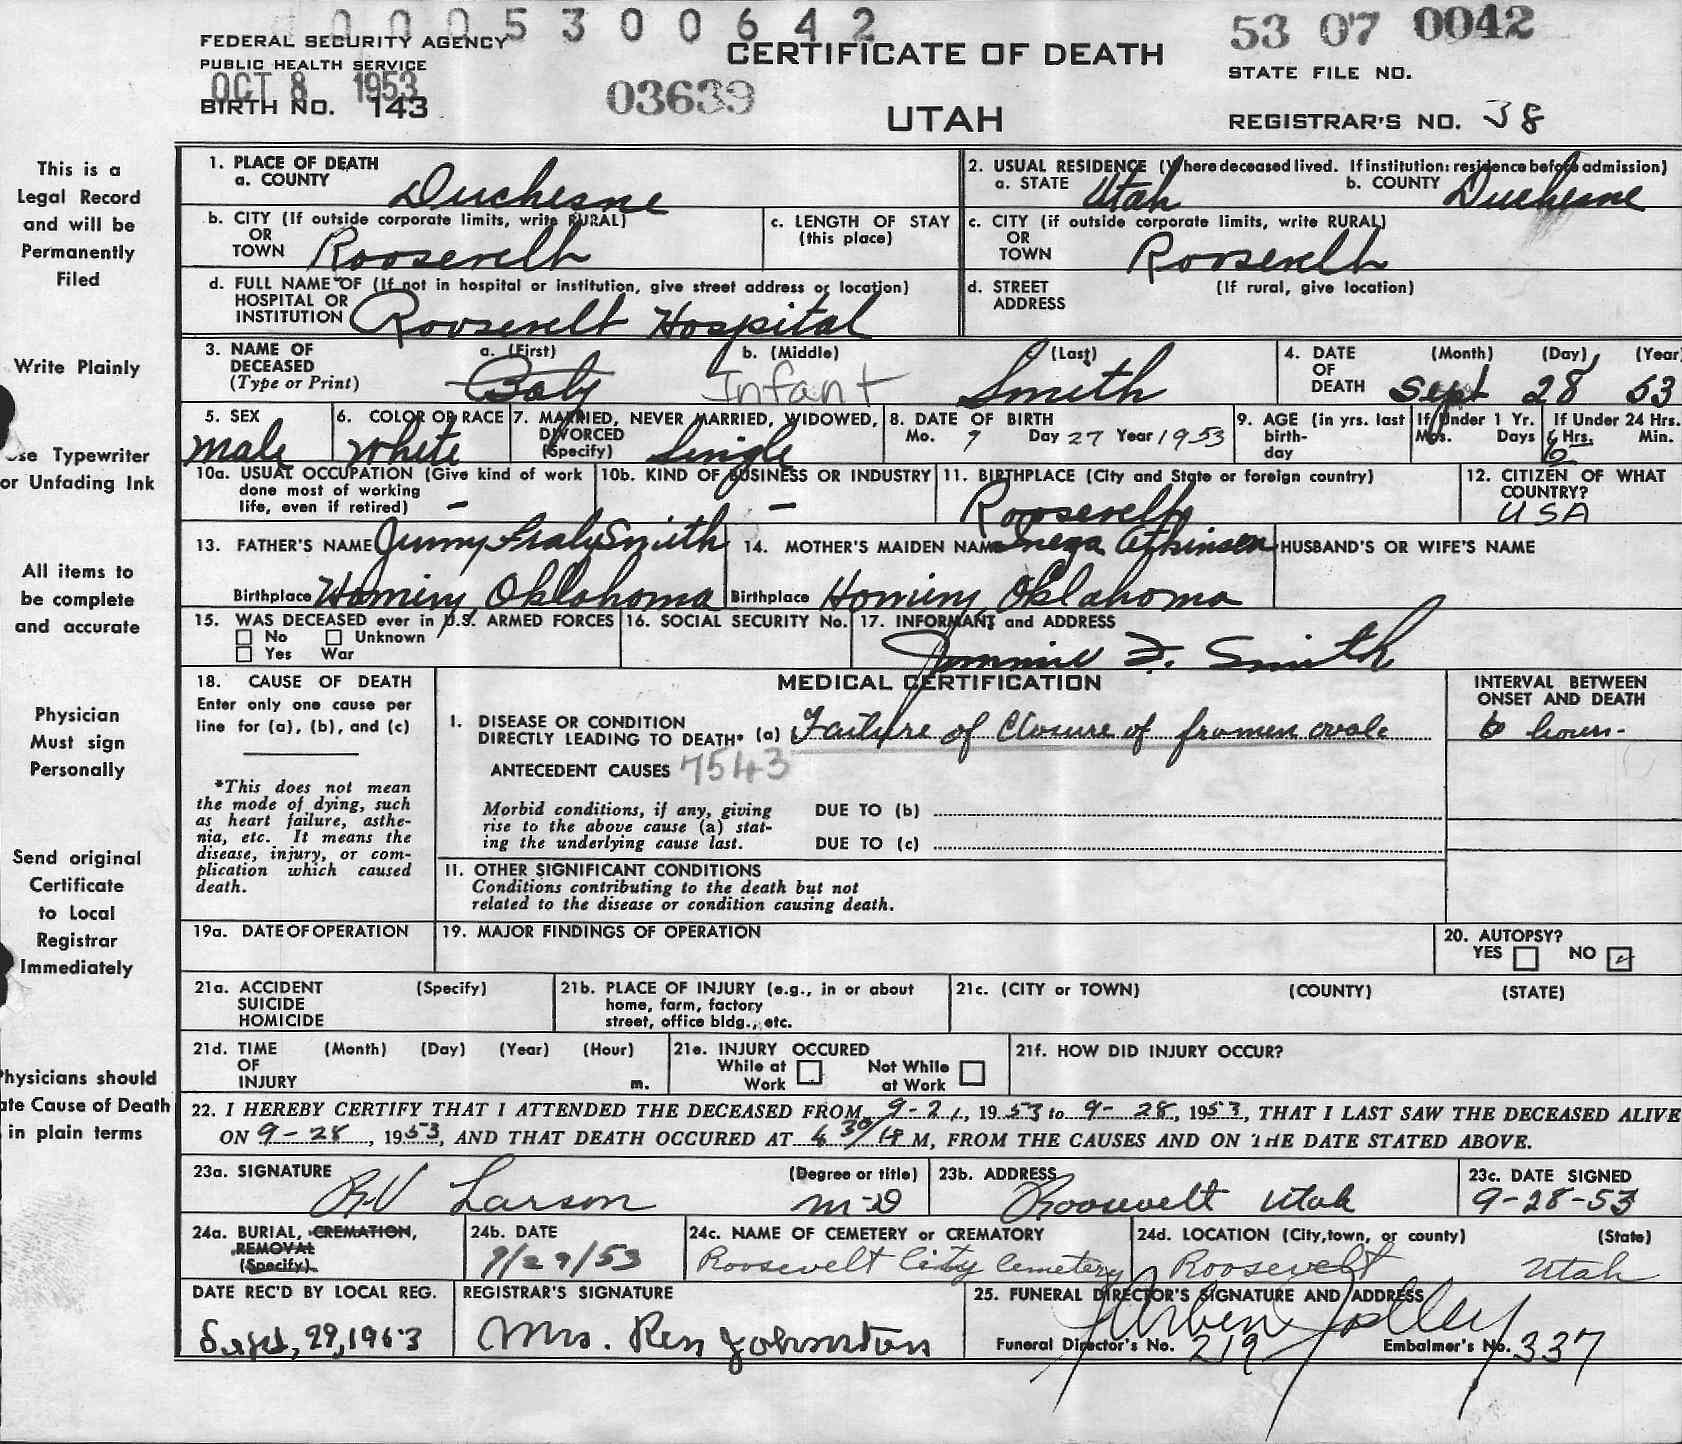 00053 00642
53 07 0042
FEDERAL SECURITY AGENCY
PUBLIC HEALTH SERVICE
CERTIFICATE OF DEATH
STATE FILE NO.
OCT 8 1953
BIRTH NO. 143
03639
UTAH
REGISTRAR'S NO. 38
This is a
Legal Record
and will be
Permanently
Filed
Write Plainly
Use Typewriter
or Unfading Ink
All items to
be complete
and accurate
Physician
Must sign
Personally
Send original
Certificate
to Local
Registrar
Immediately
Physicians should
ate Cause of Death
in plain terms
1. PLACE OF DEATH
a. COUNTY Duchesne
2. USUAL RESIDENCE (Where deceased lived. If institution: residence before admission)
a. STATE Utah b. COUNTY Duchesne
b. CITY (If outside corporate limits, write RURAL)
OR
TOWN Roosevelt
c. LENGTH OF STAY
(this place)
c. CITY (if outside corporate limits, write RURAL)
OR
TOWN Roosevelt
d. FULL NAME OF (If not in hospital or institution, give street address or location)
HOSPITAL OR
INSTITUTION Roosevelt Hospital
d. STREET (If rural, give location)
ADDRESS
3. NAME OF
DECEASED
(Type or Print)
a. (First) b. (Middle) (Last)
Baby Infant Smith
4. DATE (Month) (Day) (Year
OF
DEATH Sept 28 53
5. SEX
Male
6. COLOR OR RACE
White
7. MARRIED, NEVER MARRIED, WIDOWED,
DIVORCED
(Specify) Single
8. DATE OF BIRTH
Mo. 9 Day 27 Year 1953
9. AGE (in yrs. last
birth-
day
If Under 1 Yr.
Mos. Days
If Under 24 Hrs.
Hrs. Min.
6
10a. USUAL OCCUPATION (Give kind of work
done most of working
life, even if retired) –
10b. KIND OF BUSINESS OR INDUSTRY
–
11. BIRTHPLACE (City and State or foreign country)
Roosevelt
12. CITIZEN OF WHAT
COUNTRY?
USA
13. FATHER'S NAME Smith
Birthplace Hominy, Oklahoma
14. MOTHER'S MAIDEN NAME Atkinson
Birthplace Hominy Oklahoma
HUSBAND'S OR WIFE'S NAME
15. WAS DECEASED ever in U.S. ARMED FORCES
No Unknown
Yes War
16. SOCIAL SECURITY No.
17. INFORMANT and ADDRESS
Jimmie F. Smith
18. CAUSE OF DEATH
Enter only one cause per
line for (a), (b), and (c)
*This does not mean
the mode of dying, such
as heart failure, asthe-
nia, etc. It means the
disease, injury, or com-
plication which caused
death.
MEDICAL CERTIFICATION
INTERVAL BETWEEN
ONSET AND DEATH
I. DISEASE OR CONDITION
DIRECTLY LEADING TO DEATH* (a) Failure of Closure of fromen ovale
6 hours-
ANTECEDENT CAUSES 7543
Morbid conditions, if any, giving
rise to the above cause (a) stat-
ing the underlying cause last.
DUE TO (b)
DUE TO (c)
II. OTHER SIGNIFICANT CONDITIONS
Conditions contributing to the death but not
related to the disease or condition causing death.
19a. DATE OF OPERATION
19. MAJOR FINDINGS OF OPERATION
20. AUTOPSY?
YES NO
21a. ACCIDENT (Specify)
SUICIDE
HOMICIDE
21b. PLACE OF INJURY (e.g., in or about
home, farm, factory
street, office bldg., etc.
21c. (CITY or TOWN) (COUNTY) (STATE)
21d. TIME (Month) (Day) (Year) (Hour)
OF
INJURY m.
21e. INJURY OCCURED
While at Not While
Work at Work
21f. HOW DID INJURY OCCUR?
22. I HEREBY CERTIFY THAT I ATTENDED THE DECEASED FROM 1953 to 9-28, 1953, THAT I LAST SAW THE DECEASED ALIVE
ON 9-28, 1953, AND THAT DEATH OCCURED AT M, FROM THE CAUSES AND ON THE DATE STATED ABOVE.
23a. SIGNATURE (Degree or title)
RV Larson M-D
23b. ADDRESS
Roosevelt Utah
23c. DATE SIGNED
9-28-53
24a. BURIAL, CREMATION,
REMOVAL
(Specify)
24b. DATE
9/29/53
24c. NAME OF CEMETERY or CREMATORY
Roosevelt City Cemetery
24d. LOCATION (City, town, or county) (State)
Roosevelt Utah
DATE REC'D BY LOCAL REG.
Sept, 29, 1953
REGISTRAR'S SIGNATURE
Mrs. Ren Johnston
25. FUNERAL DIRECTOR'S SIGNATURE AND ADDRESS
Funeral Director's No. 219
Embalmer's No. 337